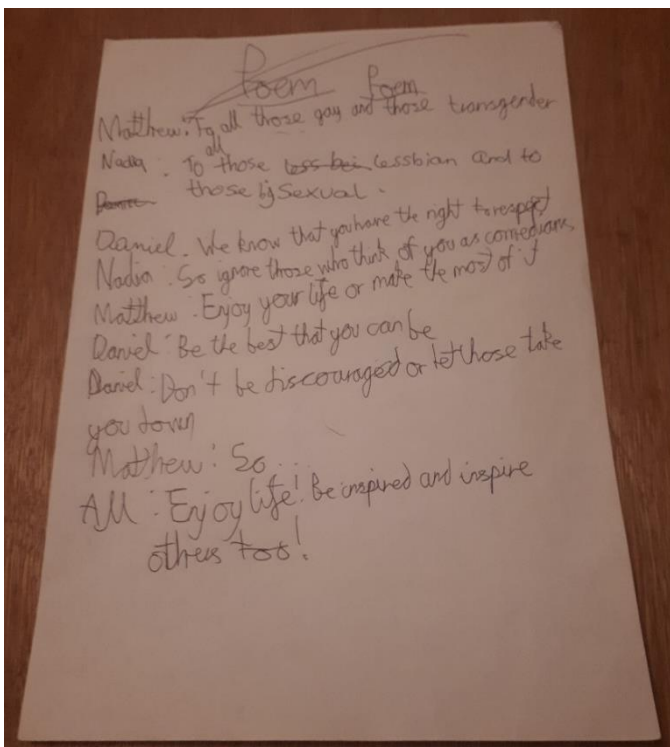 Poem Poem
Matthew: To all those gay and those transgender
all
Nadia : To those less bein lessbian and to
those bisexual.
Daniel. We know that you have the right to respect
Nadia : So ignore those who think of you as comedians
Matthew : Enjoy your life or make the most of it
Daniel : Be the best that you can be
Daniel : Don't be discouraged or let those take
you down
Matthew : So...
All : Enjoy life! Be inspired and inspire
others too!